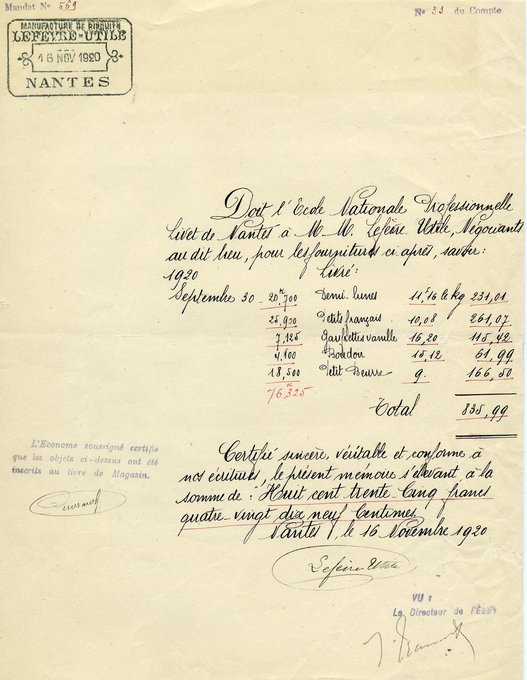 Mandat Nº 569
Nº 33 du Compte.
MANUFACTURE DE BISCUITS
LEFÈVRE-UTILE
16 NOV 1920
NANTES
Doit l'Ecole Nationale Professionnelle
Livet de Nantes à M.M. Lefèvre Utile, Négociants
au dit lieu, pour les fournitures ci après, savoir:
1920 Livré:
Septembre 30 - 20K,700 Demi-lunes 11f,16 le kg 231,01
25,900 Petits français 10,08 261,07
7,125 Gaufrettes vanille 16,20 115,42
4,100 Boudoir 15,12 61,99
18,500 Petit Beurre 9. 166,50
76K,325
Total 835,99
L'Econome soussigné certifie
que les objets ci-dessus ont été
inscrits au livre de Magasin.
Certifié sincère, véritable et conforme à
nos écritures, le présent mémoire s'élevant à la
somme de: Huit cent trente Cinq francs
quatre-vingt dix neuf Centimes
Nantes, le 16 Novembre 1920
Lefèvre Utile
VU:
Le Directeur de l'École